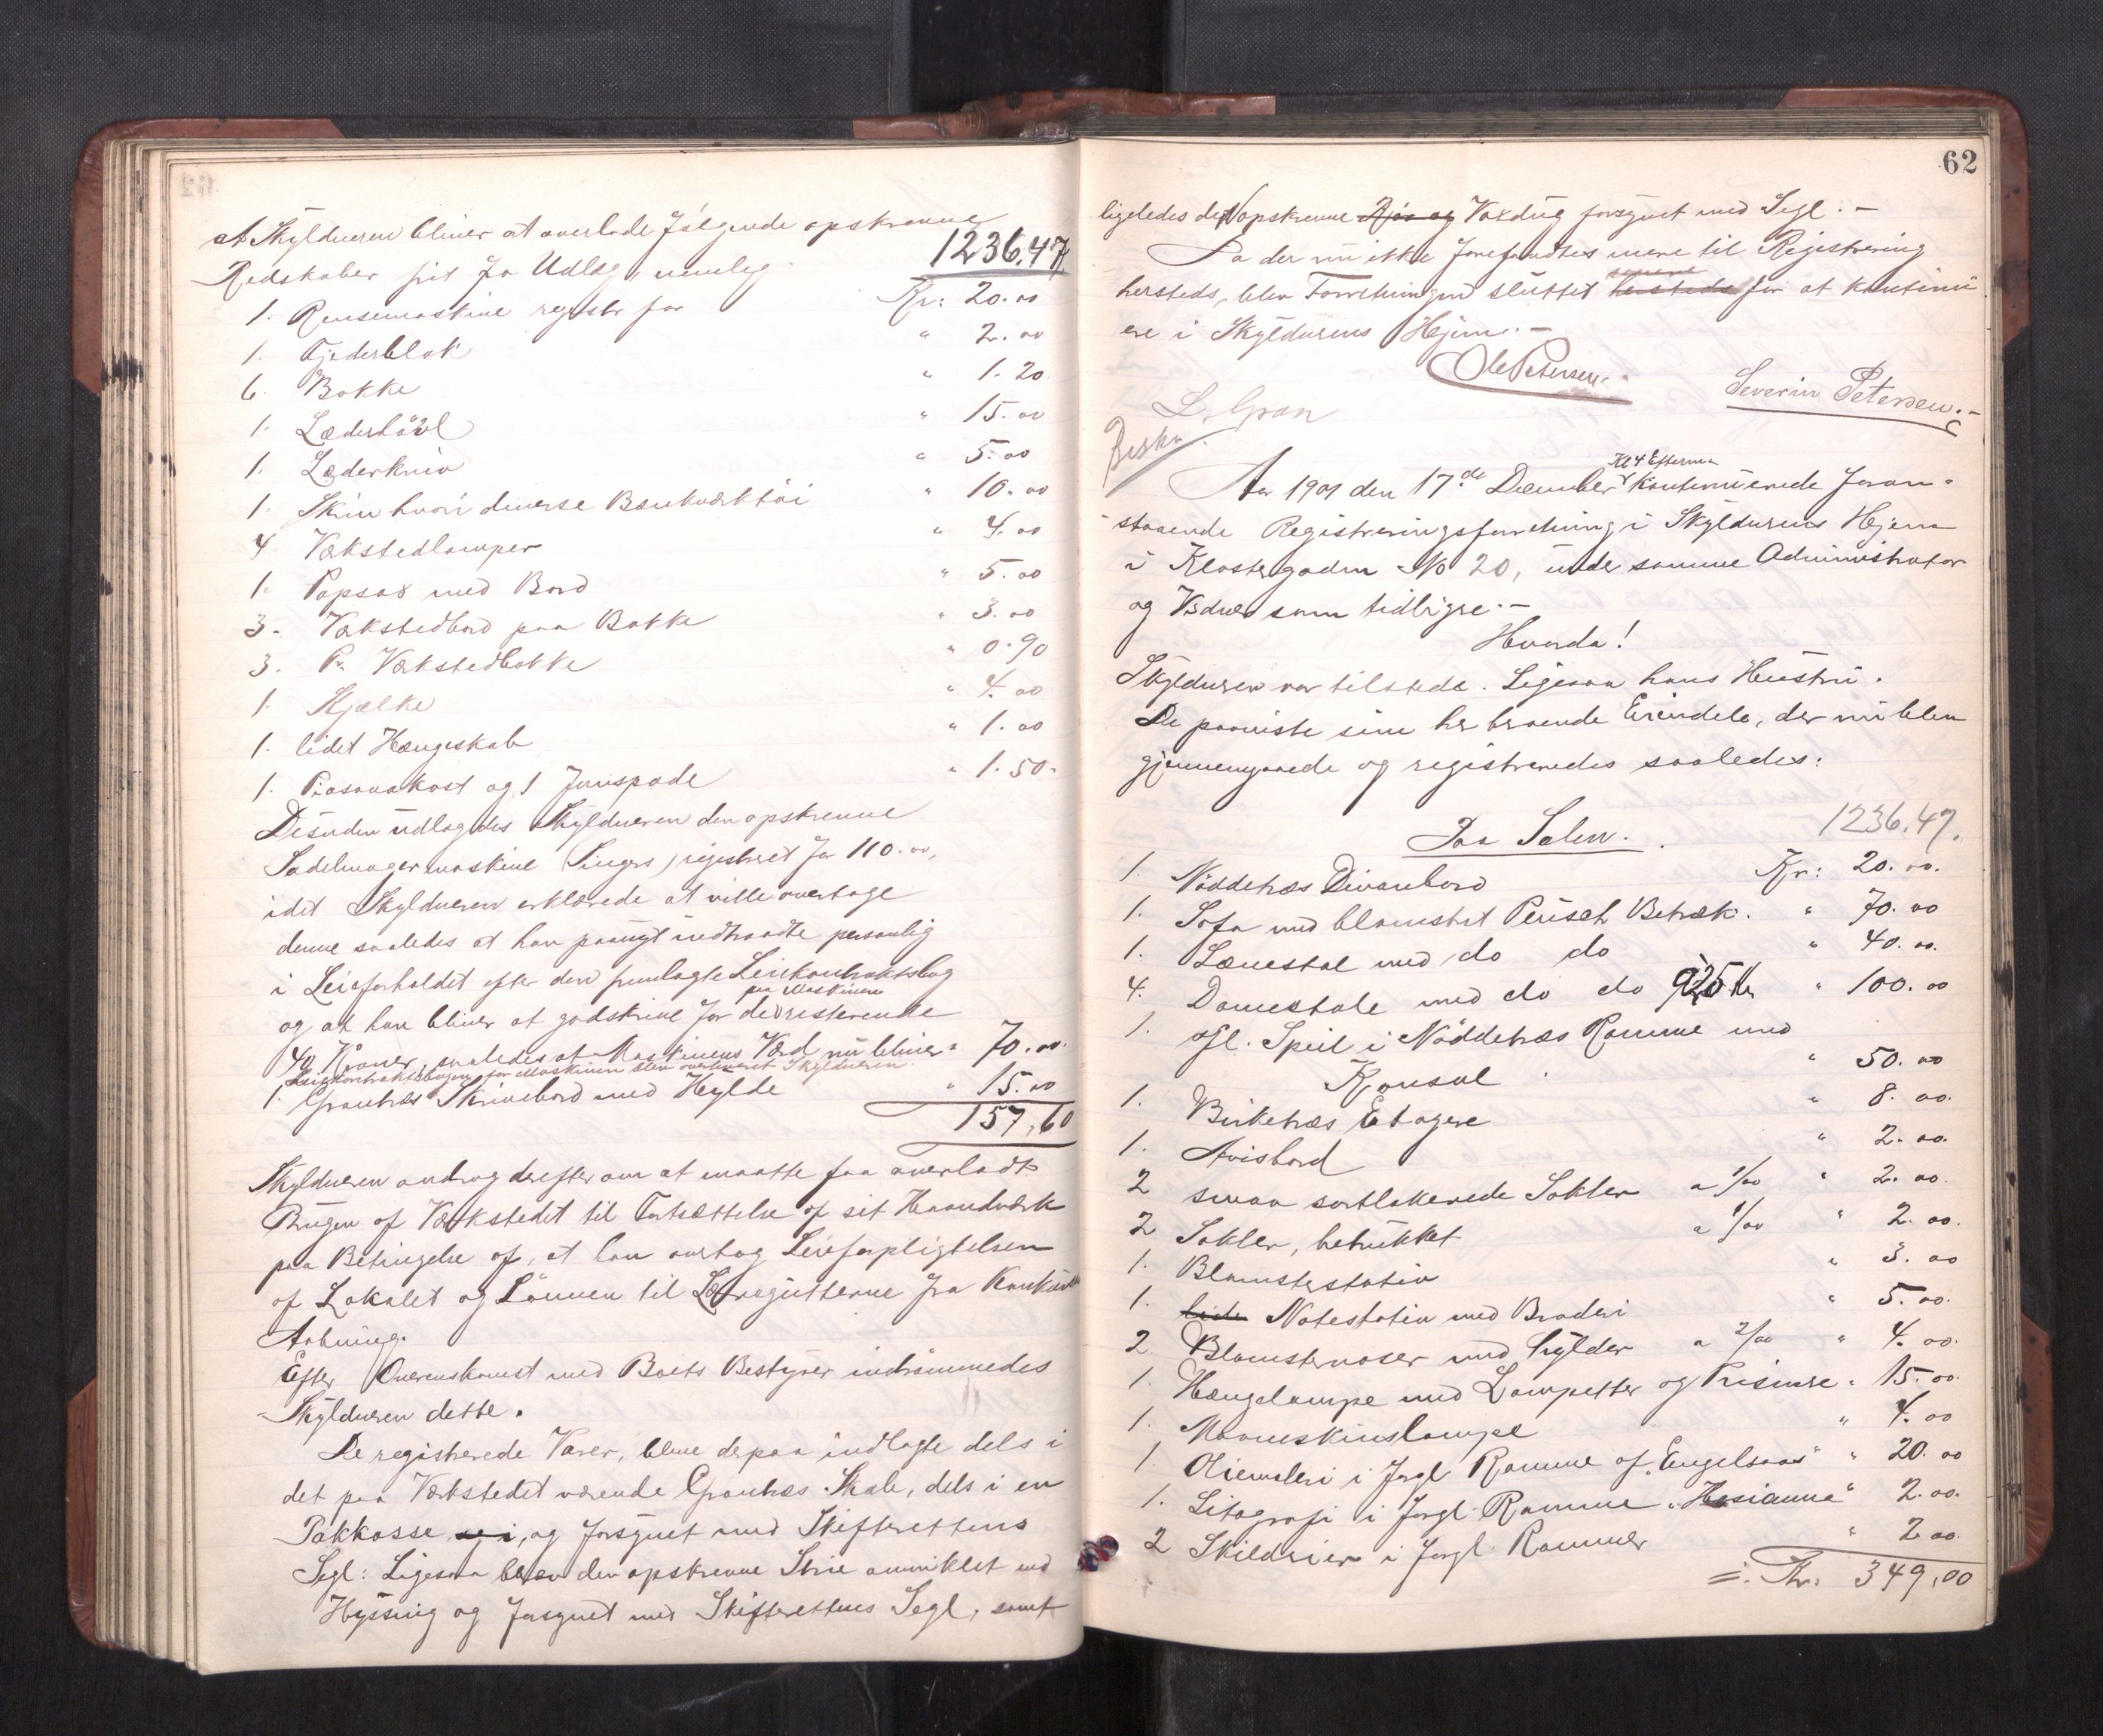 at Skylderen bliver at overlade følgende opskrevne
1236.47
Redskaber frit for Udlæg, nemlig
1. Rensemaskine registr for Kr: 20.00
1. Fjederblok " 2.00
6. Bokke " 1.20
1. Læderhövl " 15.00
1. Læderkniv " 5.00
1. Skrin hvori diverse Bænkværktöi " 10.00
4. Værkstedlamper " 4.00
1. Papsax med Bord " 5.00
3. Værkstedbord paa Bokke " 3.00
3. Pr. Værkstedbokke " 0.90
1. Kjælke " 4.00
1. lidet Hængeskab " 1.00
1. Piasavakost og 1 Jernspade " 1.50.
Desuden udlagdes Skylderen den opskrevne
Sadelmagermaskine (Singers) registreret for 110.00,
idet Skylderen erklærede at ville overtage
denne saaledes at han paanyt indtraadte personlig
i Leieforholdet efter den fremlagte Leiekontraktsbog
og at han bliver at godskrive for de paa Maskinen resterende
40 Kroner, saaledes at Maskinens Værd nu bliver " 70.00.
Leiekontraktsbogen for Maskinen blev overleveret Skylderen.
1. Grantræs Skrivebord med Hylde " 15.00
157,60
Skylderen androg derefter om at maatte faa overladt
Brugen af Værkstedet til Fortsættelse af sit Haandværk
paa Betingelse af, at han overtog Leieforpligtelsen
af Lokalet og Lönnen til Læreguttene fra Konkurs
Aabning.
Efter Overenskomst med Boets Bestyrer indrömmedes
Skylderen dette.
De registrerede Varer, bleve derpaa indlagte dels i
det paa Værkstedet værende Grantræs Skab, dels i en
Pakkasse og i, og forsynet med Skifterettens
Segl: Ligesaa blev den opskrevne Strie omviklet med
Hyssing og forsynet med Skifterettens Segl, samt
62
ligeledes det opskrevne Voxdug forsynet med Segl. -
Da der nu ikke forefandtes mere til Registrering
hersteds, blev Forretningen sluttet hersteds for at kontinu
ere i Skylderens Hjem. -
Ole Petersen.
Severin Petersen. -
L. Gran
Beskr.
Aar 1901 den 17de December Kl 4 Efterm kontinuerede foran-
staaende Registreringsforretning i Skylderens Hjem
i Klostergaden No 20, under samme Administrator
og Vidner som tidligre. -
Hvorda!
Skylderen var tilstede. Ligesaa hans Hustru.
De paaviste sine her beroende Eiendele, der nu blev
gjennemgaaede og registreredes saaledes:
Paa Salen. 1236.47.
1. Nöddetræs Divanbord Kr: 20.00.
1. Sofa med blomstret Perisch Betræk. " 70.00
1. Lænestol med do do " 40.00.
4. Damestole med do do a 25 Kr " 100.00
1. gl. Speil i Nöddetræs Ramme med
Konsol " 50.00
1. Birketræs Etagere " 8.00.
1. Avisbord " 2.00.
2 smaa sortlakerede Sokler a 1/00 " 2.00.
2 Sokler, betrukket a 1/00 " 2.00.
1. Blomsterstativ " 3.00
1. lidet Notestativ med Broderi " 5.00.
2 Blomstervaser med Hylder a 2/00 " 4.00.
1. Hængelampe med Lampetter og Prismer " 15.00.
1. Maaneskinslampe " 4.00
1. Oliemaleri i forgl Ramme af "Engelsaas" " 20.00
1. Litografi i forgl. Ramme "Hosianna" 2.00.
2 Skilderier i forgl. Rammer " 2.00.
=. Kr: 349,00